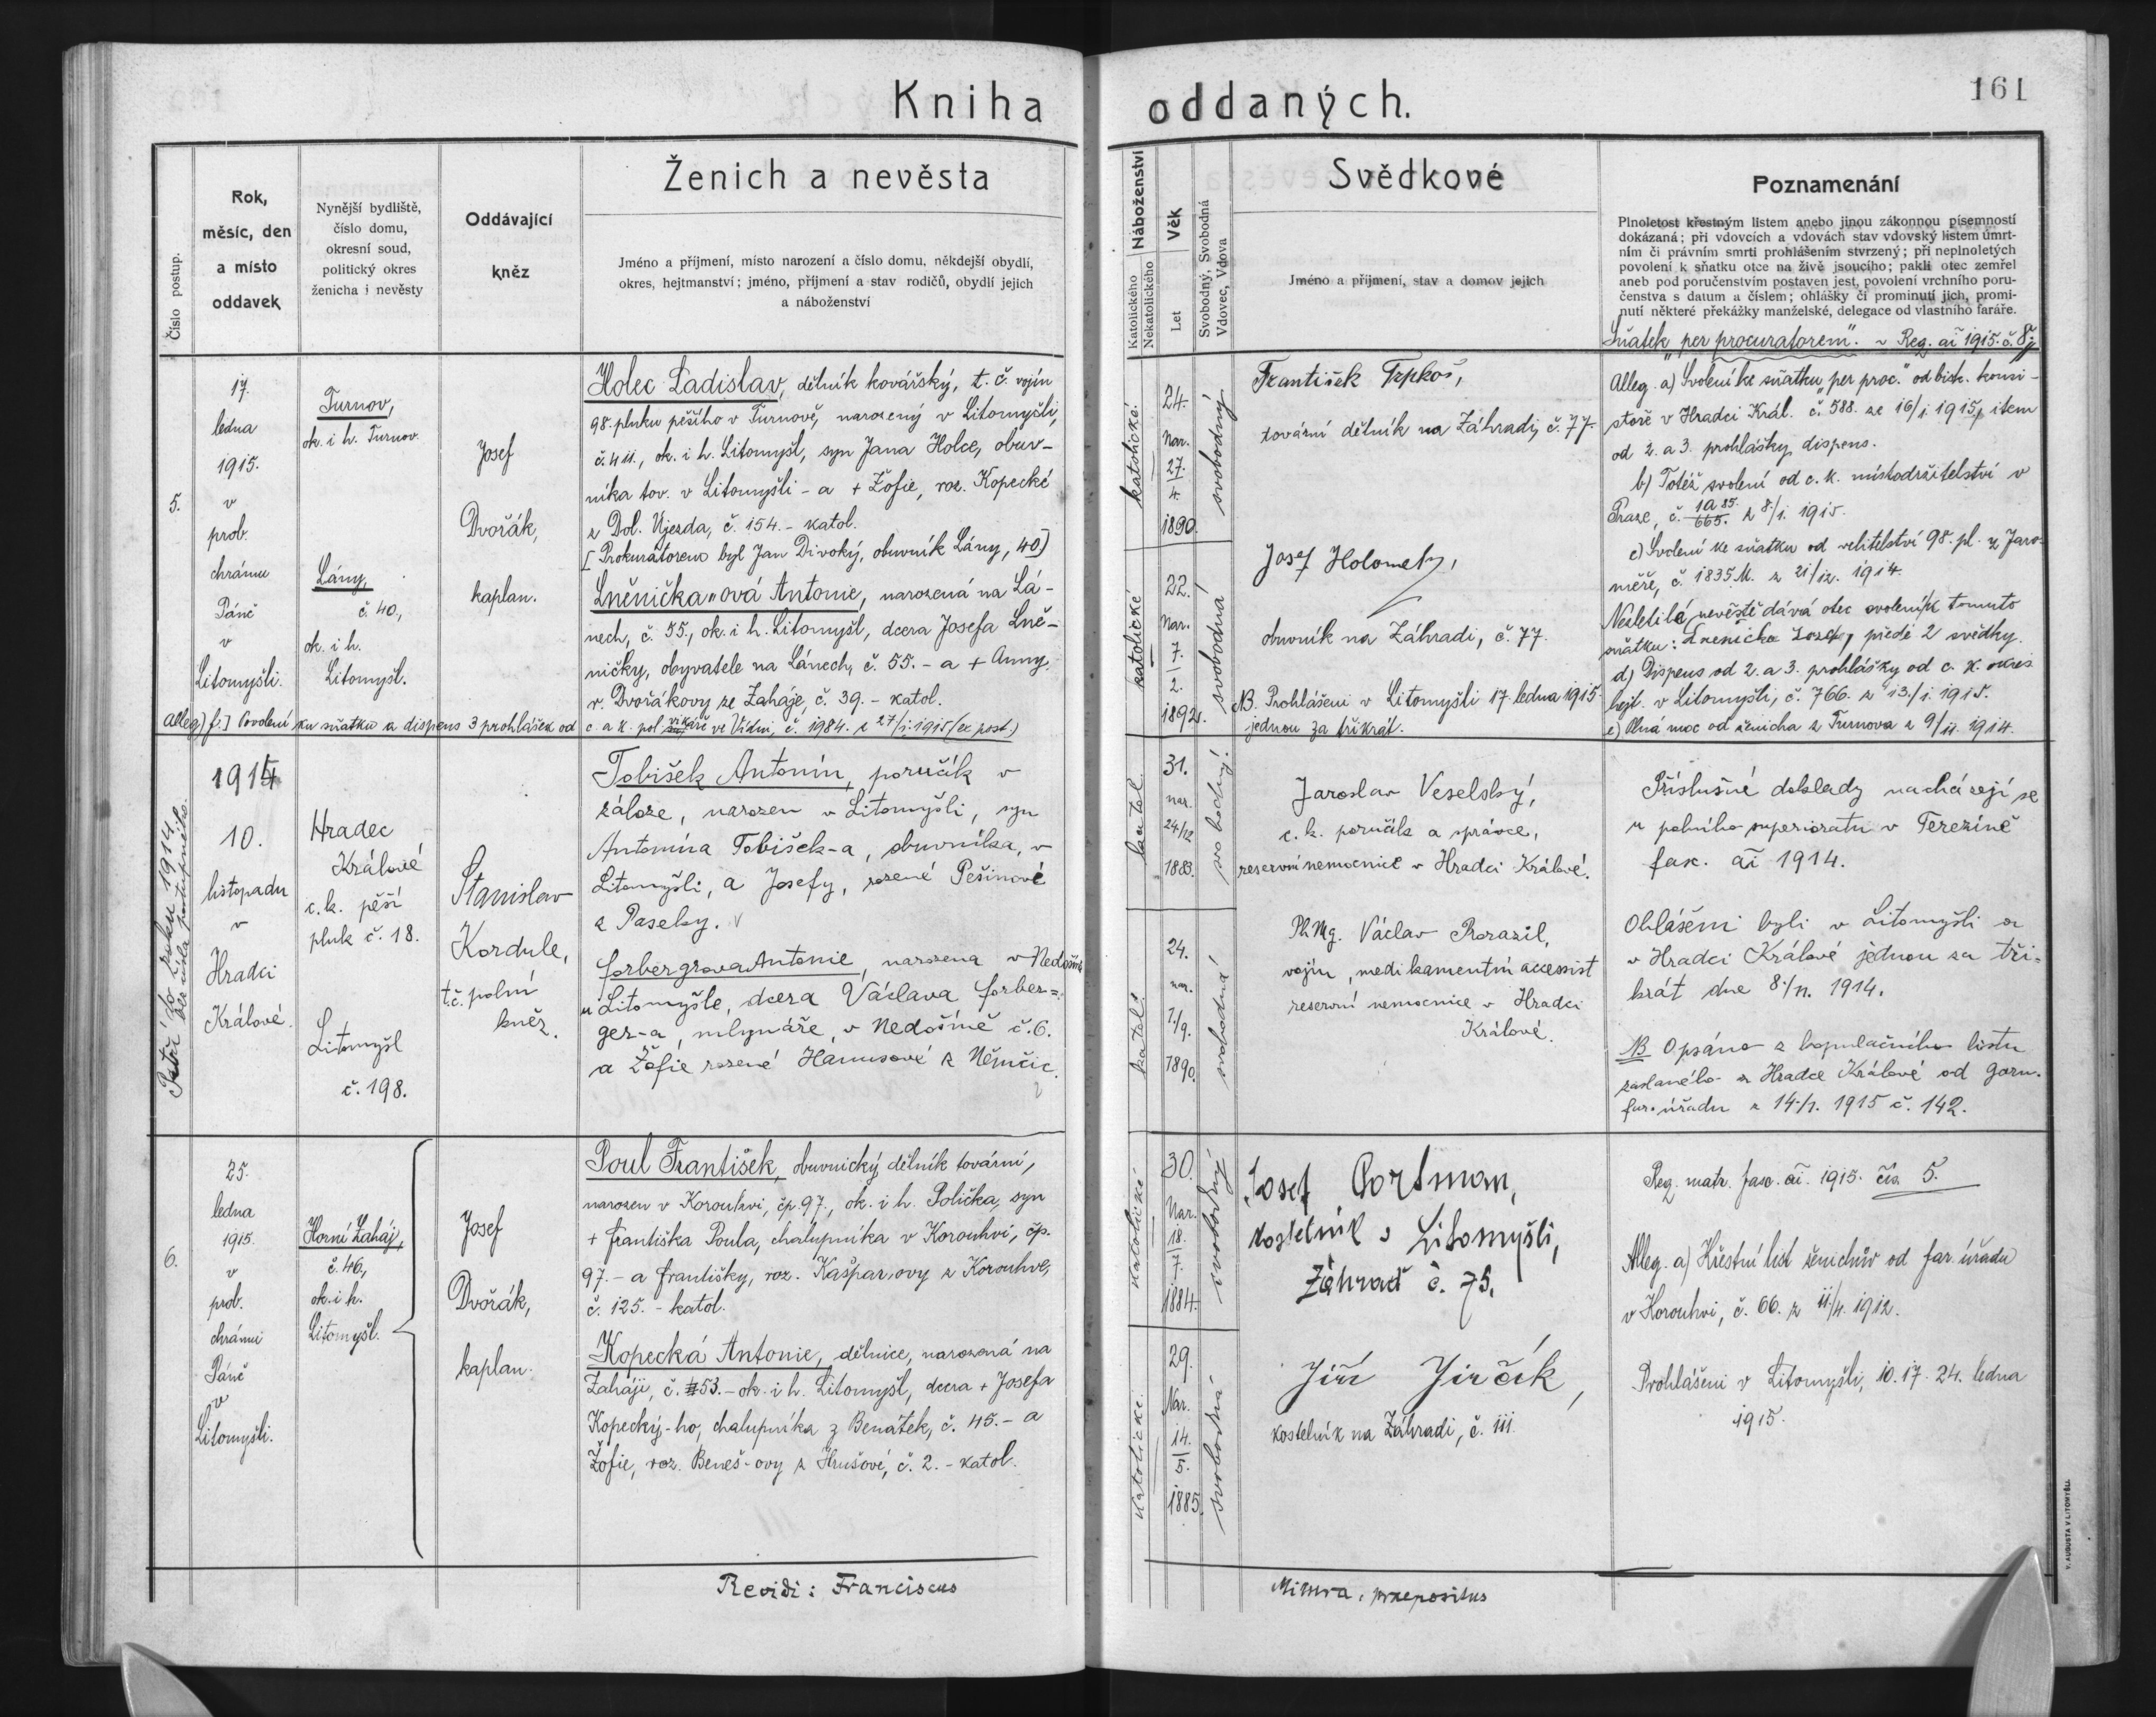 Kniha
oddaných.
161
Číslo postup.
Rok,
měsíc, den
a místo
oddavek
Nynější bydliště,
číslo domu,
okresní soud,
politický okres
ženicha i nevěsty
Oddávající
kněz
Ženich a nevěsta
Jméno a příjmení, místo narození a číslo domu, někdejší obydlí,
okres, hejtmanství; jméno, příjmení a stav rodičů, obydlí jejich
a náboženství
Náboženství
Katolického
Nekatolického
Věk
Let
Svobodný, Svobodná
Vdovec, Vdova
Svědkové
Jméno a příjmení, stav a domov jejich
Poznamenání
Plnoletost křestným listem anebo jinou zákonnou písemností
dokázaná; při vdovcích a vdovách stav vdovský listem úmrt-
ním či právním smrti prohlášením stvrzený; při neplnoletých
povolení k sňatku otce na živě jsoucího; pakli otec zemřel
aneb pod poručenstvím postaven jest, povolení vrchního poru-
čenstva s datum a číslem; ohlášky či prominutí jich, promi-
nutí některé překážky manželské, delegace od vlastního faráře.
5.
17.
ledna
1915.
v
prob.
chrámu
Páně
v
Litomyšli.
Turnov,
ok. i h. Turnov.
Lány,
č. 40,
ok. i h.
Litomyšl.
Josef
Dvořák,
kaplan.
Holec Ladislav, dělník kovářský, t. č. vojín
98. pluku pěšího v Turnově, narozený v Litomyšli,
č. 411., ok. i h. Litomyšl, syn Jana Holce, obuv-
níka tov. v Litomyšli - a + Žofie, roz. Kopecké
z Dol. Újezda, č. 154. - katol.
[Prokurátorem byl Jan Divoký, obuvník Lány, 40]
Lněnička"ová Antonie, narozená na Lá-
nech, č. 55., ok. i h. Litomyšl, dcera Josefa Lně-
ničky, obyvatele na Lánech, č. 55. - a + Anny,
r. Dvořákovy ze Zaháje, č. 39. - katol.
Alleg) f.] Povolení ku sňatku a dispens 3 prohlášek od c. a k. pol. vikáře ve Vídni, č. 1984. z 27/i. 1915 (ex post.)
katolické
24.
Nar.
27.
4.
1890.
svobodný
katolické
22.
Nar.
7.
2.
1892.
svobodná
František Trpkoš,
tovární dělník na Záhradí, č. 77.
Josef Holomek,
obuvník na Záhradí, č. 77.
NB. Prohlášeni v Litomyšli 17. ledna 1915.
jednou za třikrát.
Sňatek "per procuratorem". ~ Reg. ai 1915. č. 8.
Alleg. a) Svolení ke sňatku "per proc." od bisk. konsi-
stoře v Hradci Král. č. 588. ze 16/i. 1915, item
od 2. a 3. prohlášky dispens.
b) Totéž svolení od c. k. místodržitelství v
Praze, č. 1A 85./665. z 8./i. 1915.
c) Svolení ke sňatku od velitelství 98. pl. z Jaro-
měře, č. 1835 M. z 21/12. 1914.
Nezletilé nevěstě dává otec svolení k tomuto
sňatku: Lnenicka Josef, přede 2 svědky.
d) Dispens od 2. a 3. prohlášky od c. k. okres.
hejt. v Litomyšli, č. 766. z 13./i. 1915.
e) Plná moc od ženicha z Turnova z 9/11. 1914.
Patří do roku 1914.
bez čísla postupného.
1914
10.
listopadu
v
Hradci
Králové.
Hradec
Králové
c. k. pěší
pluk č. 18.
Litomyšl
č. 198.
Stanislav
Kordule,
t. č. polní
kněz.
Tobišek Antonín, poručík v
záloze, narozen v Litomyšli, syn
Antonína Tobišek-a, obuvníka, v
Litomyšli, a Josefy, rozené Pešinové
z Paseky.
Forbergrova Antonie, narozena v Nedošíně
u Litomyšle, dcera Václava Forber=
ger-a, mlynáře, v Nedošíně č. 6.
a Žofie rozené Hanusové z Němčic.
katol.
31.
nar.
24/12
1883.
svobodný
katol.
24.
nar.
7./9.
1890.
svobodná
Jaroslav Veselský,
c. k. poručík a správce,
reservní nemocnice v Hradci Králové.
Ph Mg. Václav Prorazil,
vojín, medikamentní accessist
reservní nemocnice v Hradci
Králové.
Příslušné doklady nacházejí se
u polního superiorátu v Terezíně
fasc. ai 1914.
Ohlášeni byli v Litomyšli a
v Hradci Králové jednou za tři-
krát dne 8./11. 1914.
NB Opsáno z kopulačního listu
zaslaného z Hradce Králové od garn.
far. úřadu z 14./1. 1915 č. 142.
6.
25.
ledna
1915.
v
prob.
chrámu
Páně
v
Litomyšli.
Horní Zaháj,
č. 46,
ok. i h.
Litomyšl.
Josef
Dvořák,
kaplan.
Poul František, obuvnický dělník tovární,
narozen v Korouhvi, čp. 97., ok. i h. Polička, syn
+ Františka Poula, chalupníka v Korouhvi, čp.
97. - a Františky, roz. Kašpar,ovy z Korouhve,
č. 125. - katol.
Kopecká Antonie, dělnice, narozená na
Zaháji, č. 53. - ok. i h. Litomyšl, dcera + Josefa
Kopecký-ho, chalupníka z Benátek, č. 45. - a
Žofie, roz. Beneš-ovy z Hrušové, č. 2. - katol.
katolické
30.
Nar.
18.
7.
1884.
svobodný
katolické.
29.
Nar.
14.
5.
1885.
svobodná
Josef Portman,
kostelník v Litomyšli,
Záhradí č. 75.
Jiří Jirčík,
kostelník na Záhradí, č. 111.
Reg. matr. fasc. ai. 1915. čís. 5.
Alleg. a) Křestní list ženichův od far. úřadu
v Korouhvi, č. 66. z 11./4. 1912.
Prohlášeni v Litomyšli, 10. 17. 24. ledna
1915.
Revidi: Franciscus
Mimra, praepositus
V. AUGUSTA V LITOMYŠLI.